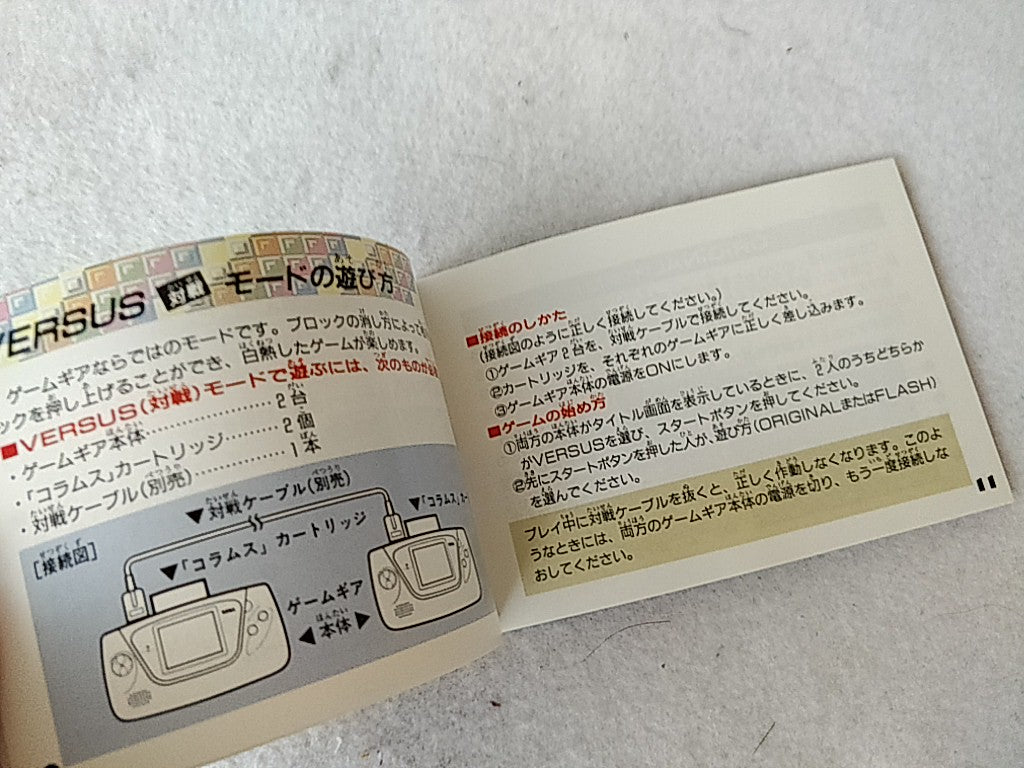 VERSUS 対戦 モードの遊び方
ゲームギアならではのモードです。ブロックの消し方によって
ックを押し上げることができ、白熱したゲームが楽しめます。
■VERSUS(対戦)モードで遊ぶには、次のものが
・ゲームギア本体……………2台
・「コラムス」カートリッジ………2個
・対戦ケーブル(別売)……………1本
[接続図]
▼対戦ケーブル(別売)
▼「コラムス」カートリッジ
▼「コラムス」カー
ゲームギア
◀本体▶
■接続のしかた
(接続図のように正しく接続してください。)
①ゲームギア2台を、対戦ケーブルで接続してください。
②カートリッジを、それぞれのゲームギアに正しく差し込みます。
③ゲームギア本体の電源をONにします。
■ゲームの始め方
①両方の本体がタイトル画面を表示しているときに、2人のうちどちらか
がVERSUSを選び、スタートボタンを押してください。
②先にスタートボタンを押した人が、遊び方(ORIGINALまたはFLASH)
を選んでください。
プレイ中に対戦ケーブルを抜くと、正しく作動しなくなります。このよ
うなときには、両方のゲームギア本体の電源を切り、もう一度接続しな
おしてください。
11